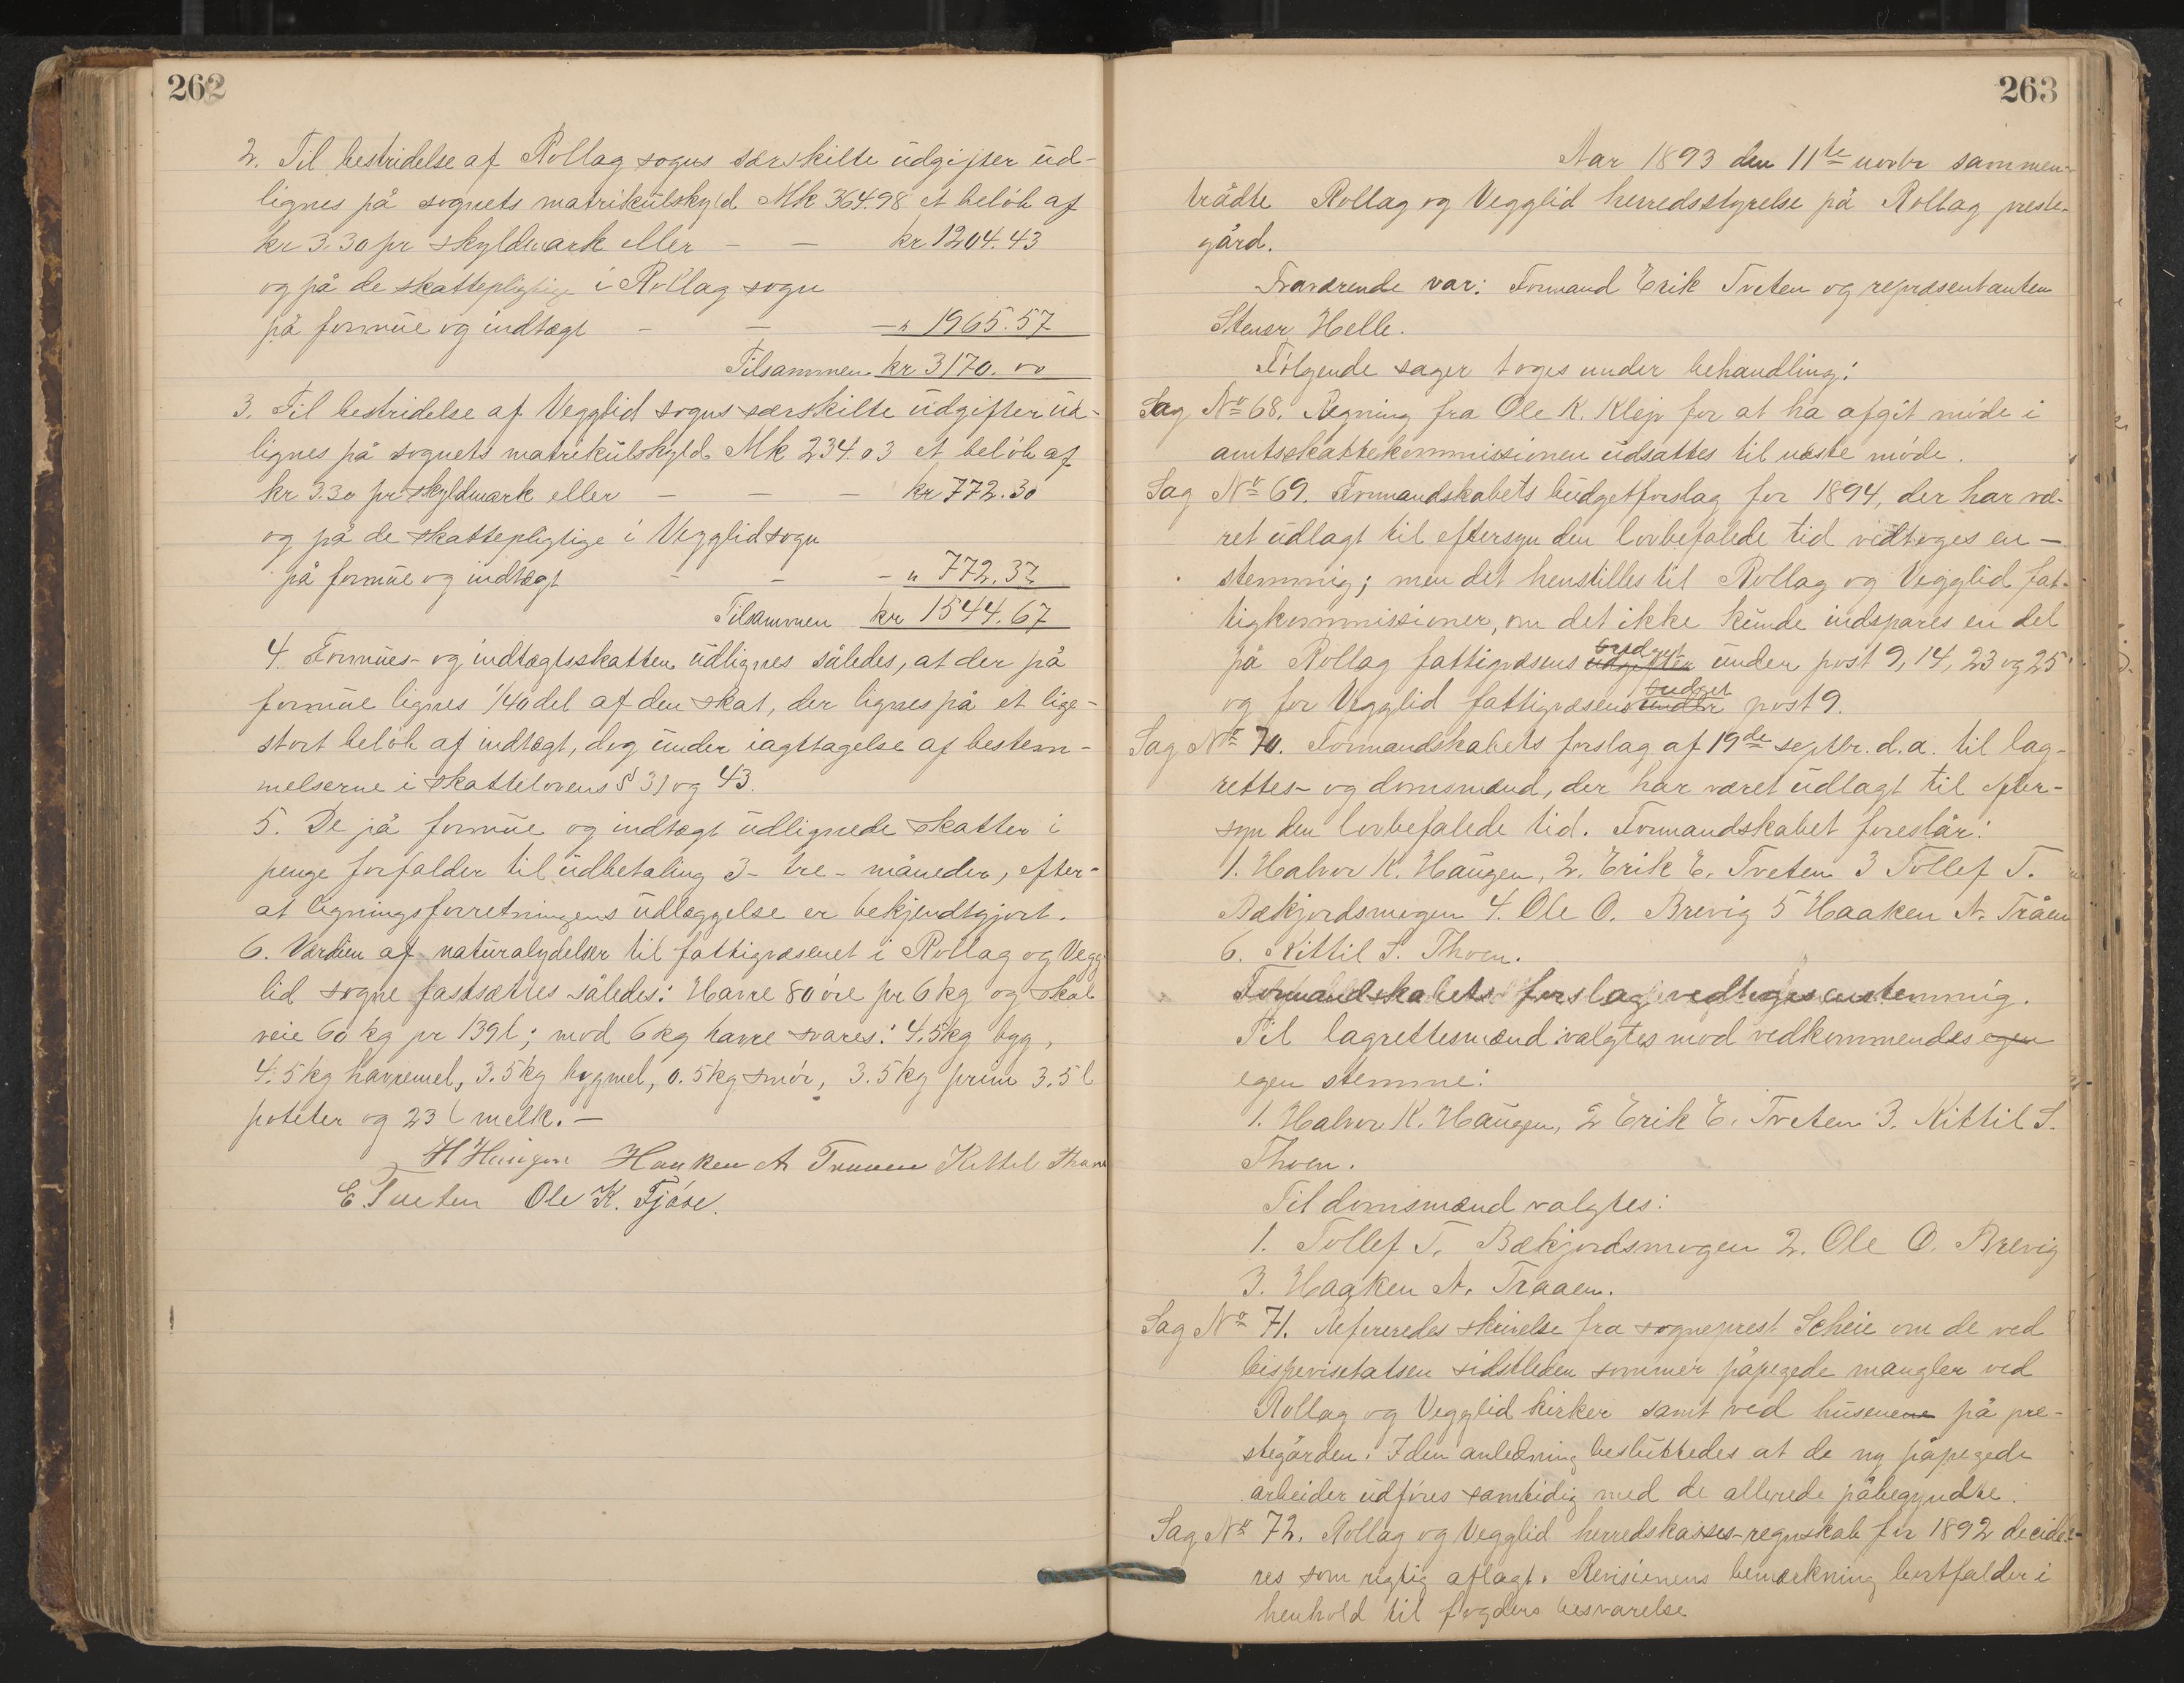 262
2. Til bestridelse af Rollag sogns særskilte udgifter ud-
lignes på sognets matrikulskyld Mk 364.98 et beløb af
kr 3.30 pr skyldmark eller - - kr 1204.43
og på de skattepligtige i Rollag sogn
på formue og indtægt - - - " 1965.57
Tilsammen kr 3170.00
3. Til bestridelse af Vegglid sogns særskilte udgifter ud-
lignes på sognets matrikulskyld Mk 234.03 et beløb af
kr 3.30 pr skyldmark eller - - - kr 772.30
og på de skattepligtige i Vegglid sogn
på formue og indtægt - - - " 772.37
Tilsammen kr 1544.67
4. Formues- og indtægtsskatten udlignes således, at der på
formue lignes 1/40 del af den skat, der lignes på et lige-
stort beløb af indtægt, dog under iagttagelse af bestem-
melserne i skattelovens § 31 og 43.
5. De på formue og indtægt udlignede skatter i
penge forfalder til udbetaling 3- tre- måneder, efter-
at ligningsforretningens udlæggelse er bekjendtgjort.
6. Værdien af naturalydelser til fattigvæsenet i Rollag og Vegg
lid sogne fastsættes således: Havre 80 øre pr 6 kg og skal
veie 60 kg pr 139 l; mod 6 kg havre svares: 4.5 kg byg,
4.5 kg havremel, 3.5 kg bygmel, 0.5 kg smør, 3.5 kg prim 3.5 l
poteter og 23 l melk. -
H Haugen Haaken A Traaen Kittil Thoen
E. Tveten Ole K. Fjøse.
263
Aar 1893 den 11te novbr sammen-
trådte Rollag og Vegglid herredsstyrelse på Rollag preste-
gård.
Fraværende var: Formand Erik Tveten og repræsentanten
Stener Helle.
Følgende sager toges under behandling:
Sag No 68. Regning fra Ole K. Klev for at ha afgit møde i
amtsskattekommissionen udsattes til næste møde.
Sag No 69. Formandskabets budgetforslag for 1894, der har væ-
ret udlagt til eftersyn den lovbefalede tid vedtoges en-
stemmig; men det henstilles til Rollag og Vegglid fat-
tigkommissioner, om det ikke kunde indspares en del
på Rollag fattigvæsens udgifter budget under post 9, 14, 23 og 25
og for Vegglid fattigvæsens under budget post 9.
Sag No 70. Formandskabets forslag af 19de septbr. d.a. til lag-
rettes- og domsmænd, der har været udlagt til efter-
syn den lovbefalede tid. Formandskabet foreslår:
1. Halvor K. Haugen, 2. Erik E. Tveten 3 Tollef T.
Bækjordsmogen 4. Ole O. Brevig 5 Haaken A. Tråen
6. Kittil S. Thoen.
Formandskabets forslag vedtoges enstemmig.
Til lagrettesmænd valgtes mod vedkommendes egen
egen stemme:
1. Halvor K. Haugen, 2 Erik E. Tveten 3. Kittil S.
Thoen.
Til domsmænd valgtes:
1. Tollef T. Bækjordsmogen 2. Ole O. Brevig
3. Haaken A. Traaen.
Sag No 71. Refereredes skrivelse fra sogneprest Scheie om de ved
bispevisitatsen sidstleden sommer påpegede mangler ved
Rollag og Vegglid kirker samt ved husenene på pre-
stegården. I den anledning besluttedes at de ny påpegede
arbeider udføres samtidig med de allerede påbegyndte.
Sag No 72. Rollag og Vegglid herredskasses-regnskab for 1892 decide-
res som rigtig aflagt. Revisionens bemærkning bortfalder i
henhold til fogders besvarelse